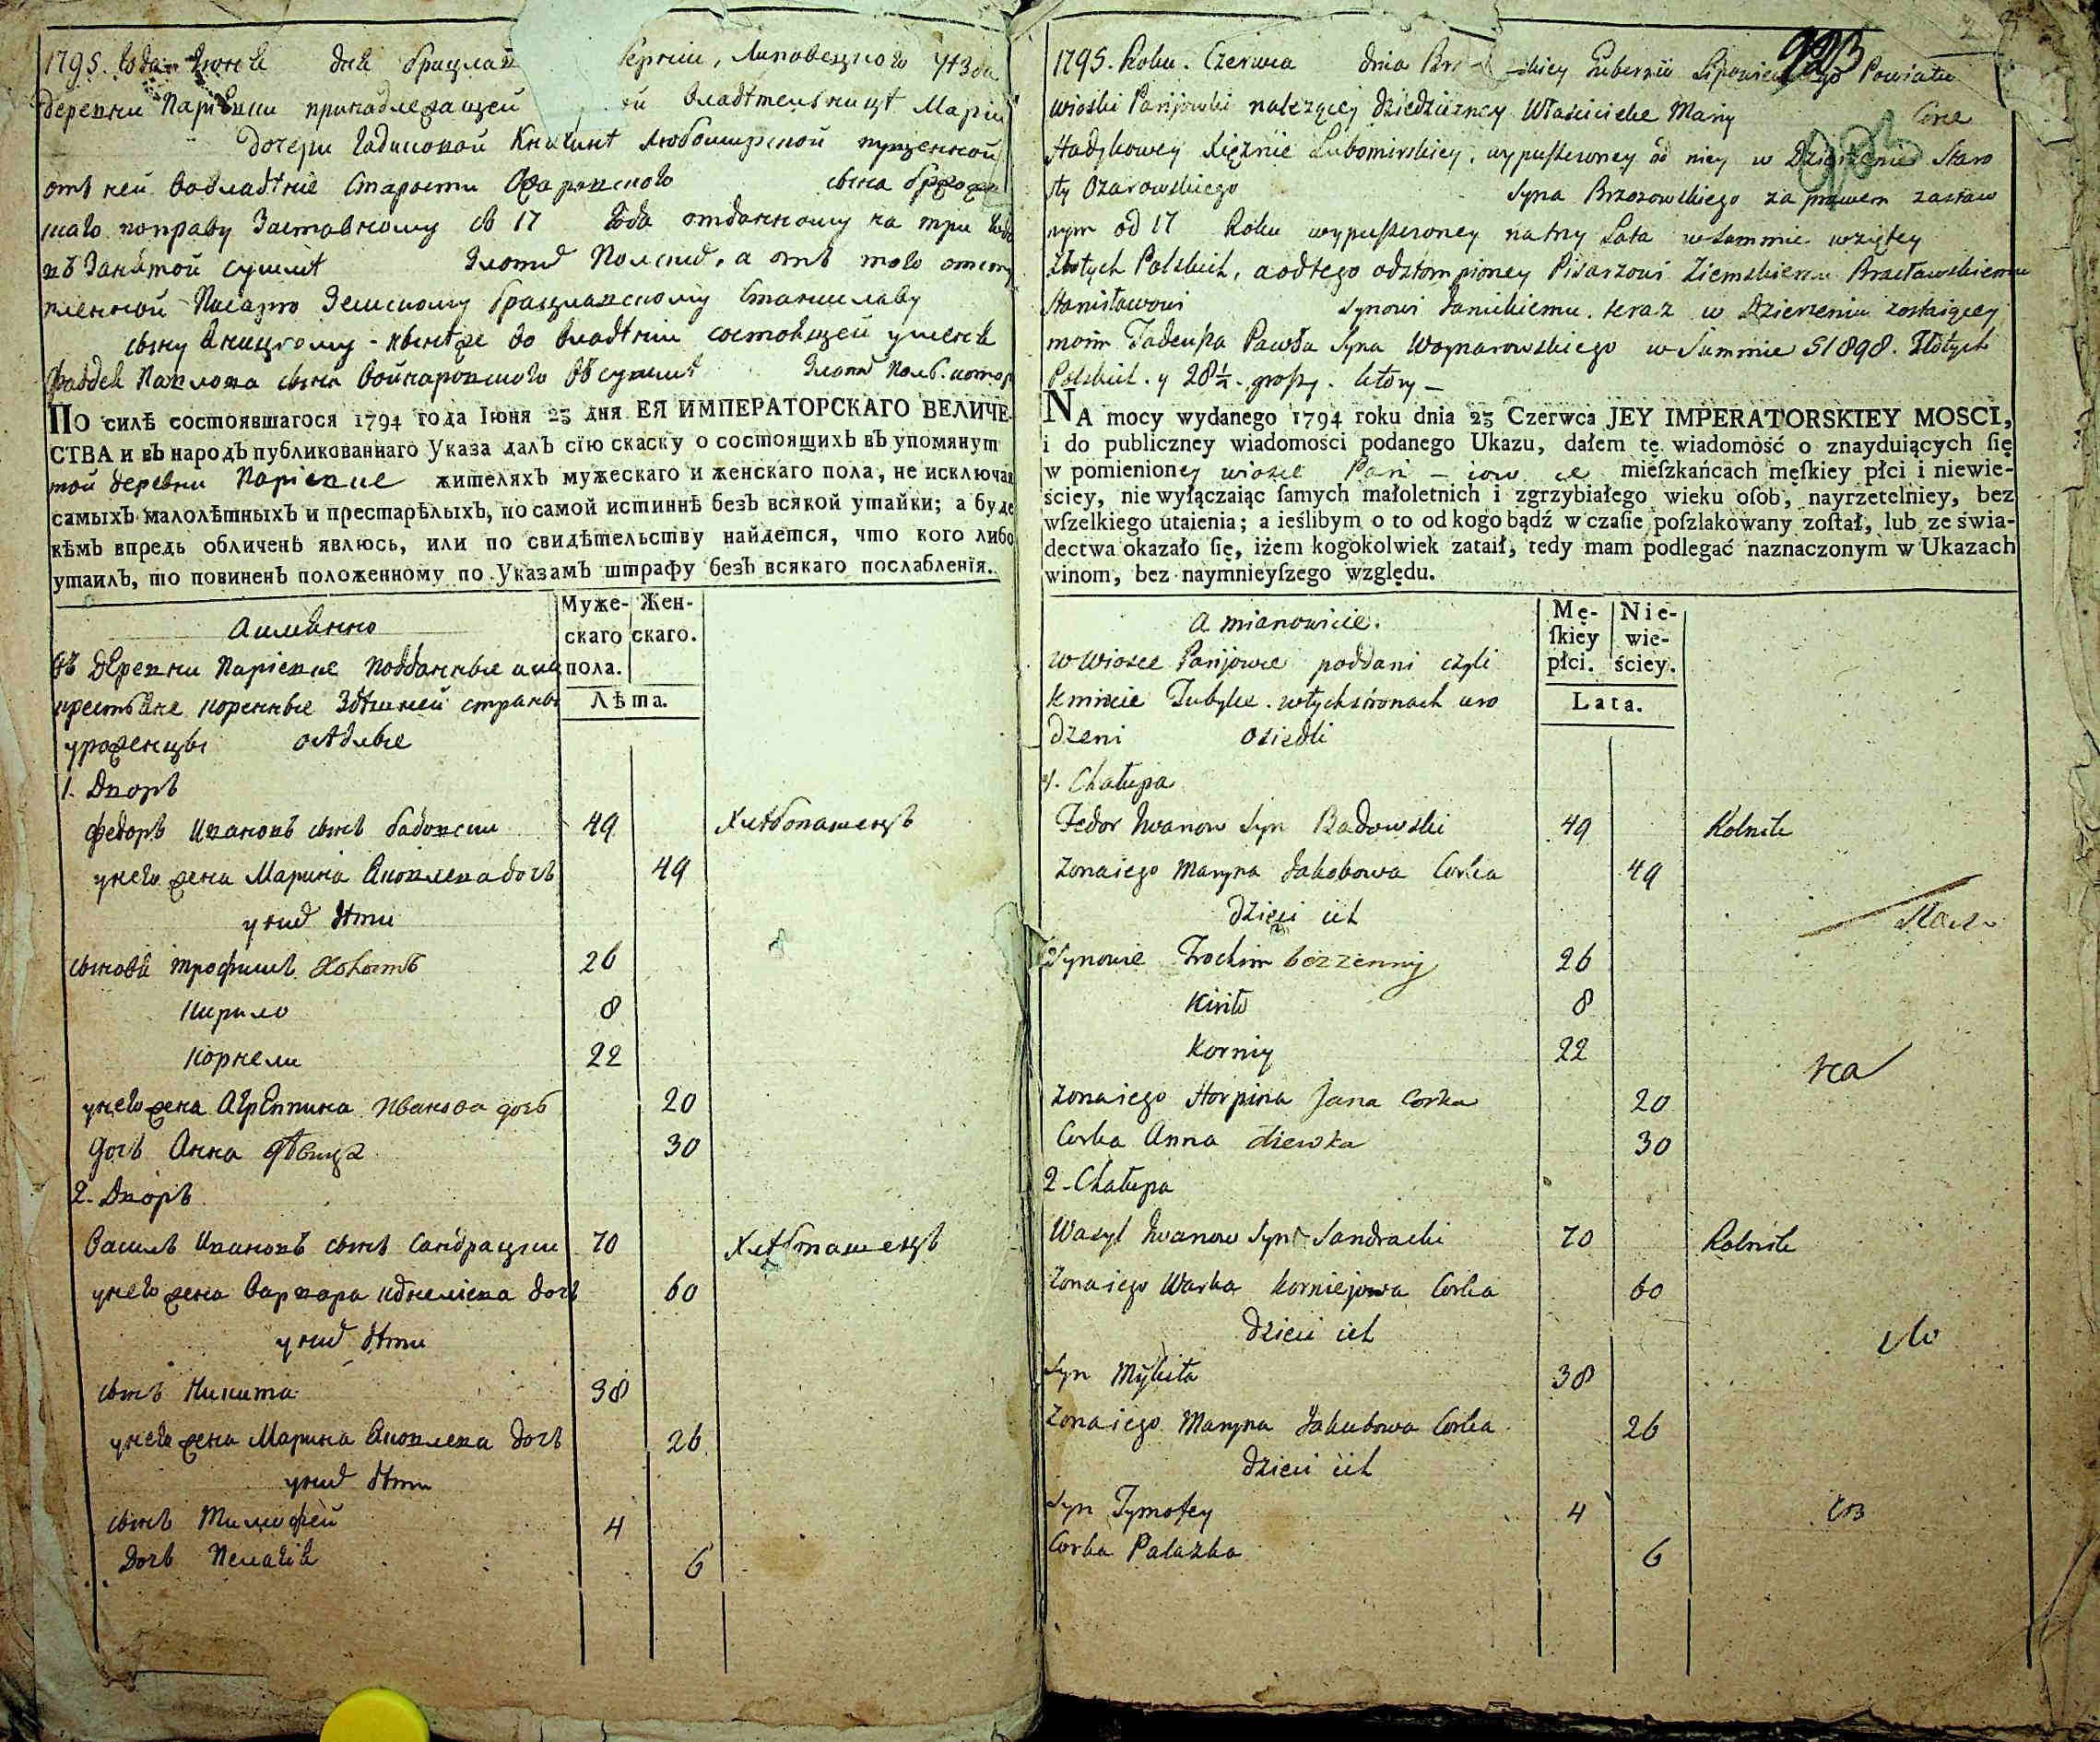 1795. Года Июня дня Брацлав берніи, Липовецкого уѣзда
деревни Паріевки принадлежащей ой владѣтельницѣ Маріи
дочери Княгинѣ Любомирской пущенной
отъ ней во владѣніе Старости Ожаровского сына
шаго поправу Заставному съ 17 Года отданному на три года
въ Занятой суммѣ Злотыхъ Полскихъ, а отъ того отсту
пленной Писарю Земскому Брацлавскому Станиславу
сыну Яницкому нынѣ же во владѣніи состоящей у меня
Фаддея Павлова сына Войнаровского въ суммѣ Злотыхъ Поль. котор
По силѣ состоявшагося 1794 года Іюня 23 дня ЕЯ ИМПЕРАТОРСКАГО ВЕЛИЧЕ-
СТВА и въ народъ публикованнаго Указа далъ сію скаску о состоящихъ въ упомянут
той деревни Паріевке жителяхъ мужескаго и женскаго пола, не исключая
самыхъ малолѣтныхъ и престарѣлыхъ, по самой истиннѣ безъ всякой утайки; а буде
кѣмъ впредь обличенъ явлюсь, или по свидѣтельству найдется, что кого либо
утаилъ, то повиненъ положенному по Указамъ штрафу безъ всякаго послабленія.
Муже- Жен-
скаго скаго.
пола.
Лѣта.
А имянно
Въ деревни Паріевке подданные или
крестьяне коренные здѣшней страны
уроженцы осѣдлые
1. Дворъ
Федоръ Ивановъ сынъ Бадовски 49 Хлѣбопашецъ
у него жена Марина Яковлева дочь 49
у нихъ дѣти
сыновя Трофимъ холостъ 26
Кирило 8
Корнели 22
у него жена Агрепина Иванова дочь 20
дочь Анна дѣвица 30
2. Дворъ
Василь Ивановъ сынъ Сандрацки 70 Хлѣбпашецъ
у него жена Варвара Корнеліева дочь 60
у нихъ дѣти
сынъ Никита 38
у него жена Марина Яковлева дочь 26
у нихъ дѣти
сынъ Тимофей 4
дочь Пелагія 6
1795. Roku. Czerwca dnia Br skiey Gubernii Lipowieckiego Powiatu
wioski Parijowki należącey dziedziczney Właścicielce Maryi Corce
Xiężnie Lubomirskiey, wypuszczoney od niey w Dzierżenie Staro
sty Ożarowskiego Syna Brzozowskiego za prawem zastaw
nym od 17 Roku wypuszczoney na try Lata w Summie wziętey
Złotych Polskich, a od tego odstompioney Pisarzowi Ziemskiemu Bracławskiemu
Stanisławowi Synowi Janickiemu. teraz w Dzierżeniu zostaiącey
moim Tadeusza Pawła Syna Woynarowskiego w Summie 51898. Złotych
Polskich. y 28½. groszy. który —
NA mocy wydanego 1794 roku dnia 23 Czerwca JEY IMPERATORSKIEY MOSCI,
i do publiczney wiadomości podanego Ukazu, dałem tę wiadomość o znayduiących ſię
w pomienioney wiosce Pari — iow ce mieſzkańcach męſkiey płci i niewie-
ściey, nie wyłączaiąc ſamych małoletnich i zgrzybiałego wieku oſob, nayrzetelniey, bez
wſzelkiego utaienia; a ieślibym o to od kogo bądź w czaſie poſzlakowany zoſtał, lub ze świa-
dectwa okazało ſię, iżem kogokolwiek zataił, tedy mam podlegać naznaczonym w Ukazach
winom, bez naymnieyſzego względu.
Mę- Nie-
ſkiey wie-
płci. ściey.
Lata.
a mianowicie.
w wiosce Parijowce poddani czyli
kmiecie Tubylce. w tych stronach uro
dzeni osiedli
1. Chałupa
Fedor Iwanow Syn Badowski 49 Rolnik
Zona iego Maryna Jakobowa Corka 49
dzieci ich
Synowie Trochim bezzenny 26
Kiriło 8
Korniy 22
Zona iego Horpina Jana Corka 20
Corka Anna diewka 30
2. Chałupa
Wasyl Iwanow Syn Sandracki 70 Rolnik
Zona iego Warka Korniejowa Corka 60
dzieci ich
Syn Mykita 38
Zona iego Maryna Jakubowa Corka 26
dzieci ich
Syn Tymofey 4
Corka Palazka 6